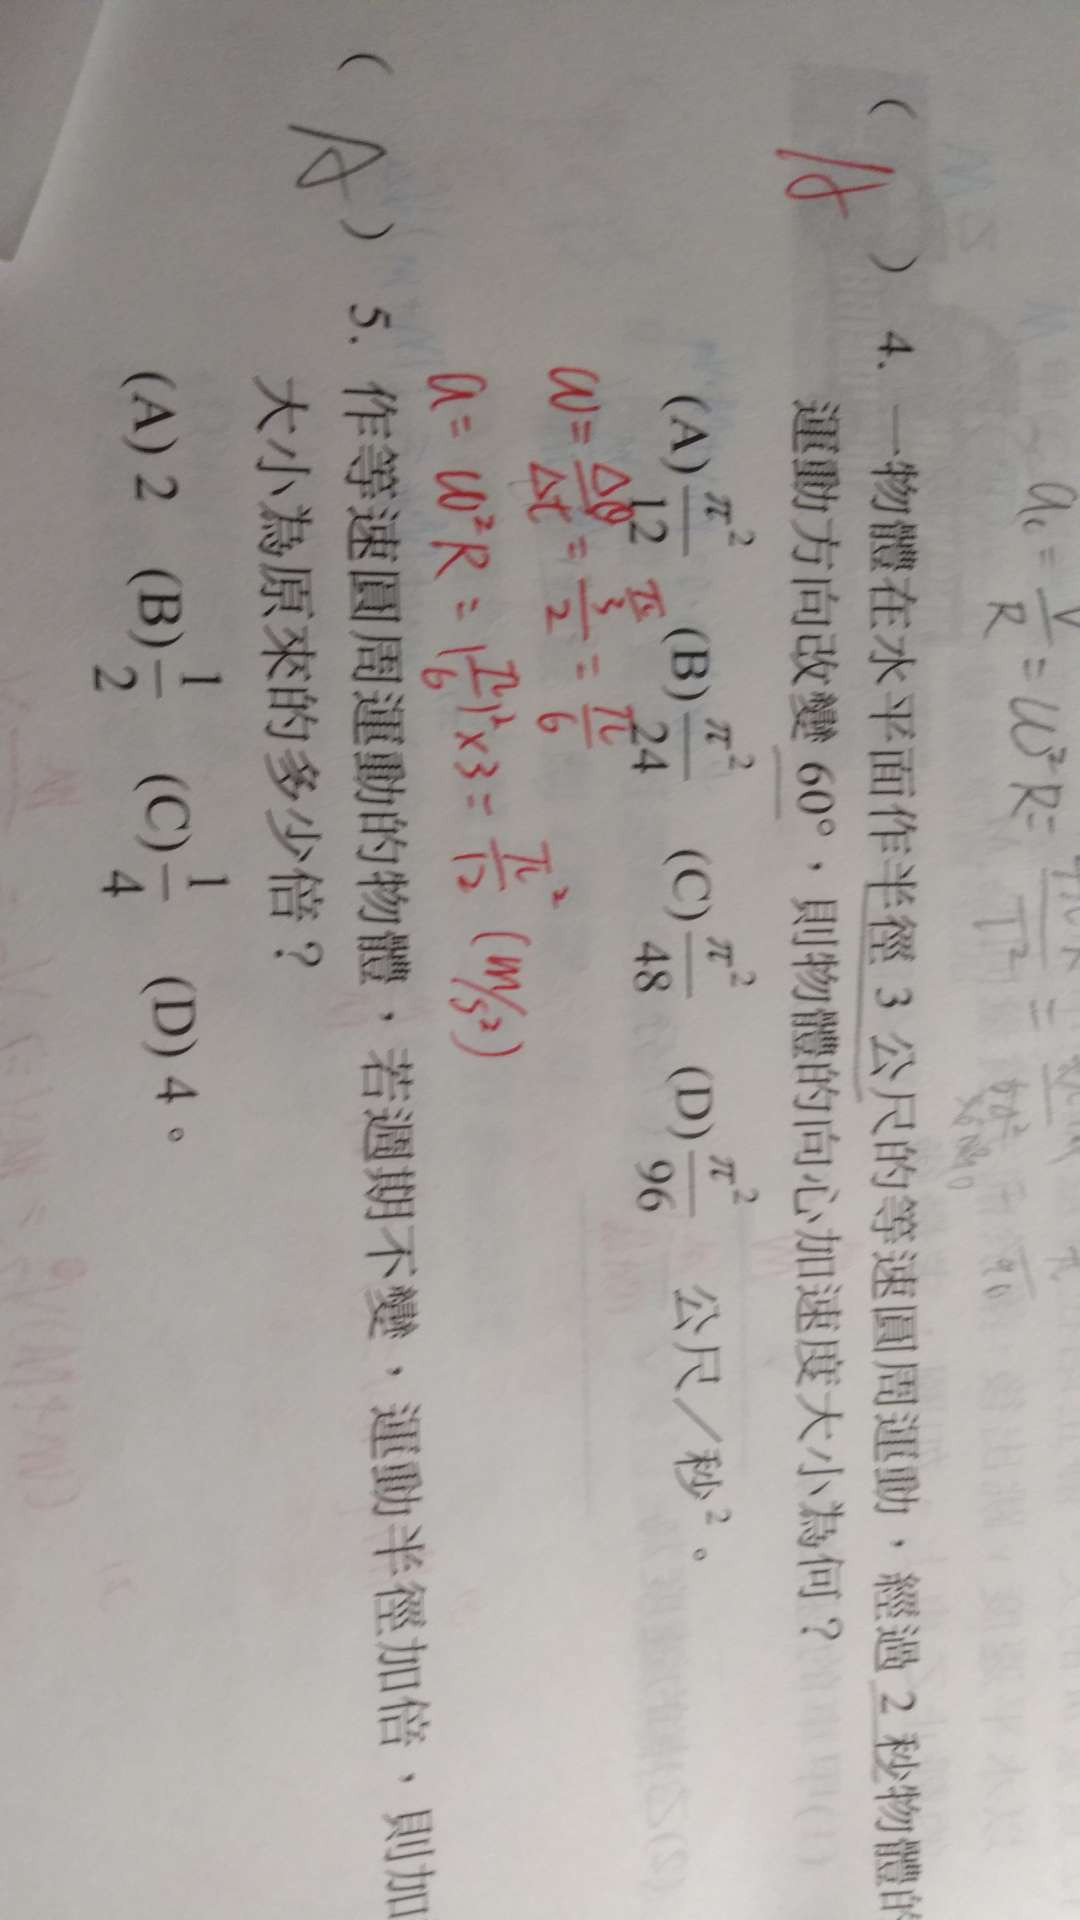 a_c = V/R = ω²R =
( A ) 4. 一物體在水平面作半徑 3 公尺的等速圓周運動，經過 2 秒物體的
運動方向改變 60°，則物體的向心加速度大小為何？
(A) π²/12 (B) π²/24 (C) π²/48 (D) π²/96 公尺／秒²。
ω = Δθ/Δt = (π/3)/2 = π/6
a = ω²R = (π/6)² × 3 = π²/12 (m/s²)
( A ) 5. 作等速圓周運動的物體，若週期不變，運動半徑加倍，則加
大小為原來的多少倍？
(A) 2 (B) 1/2 (C) 1/4 (D) 4。